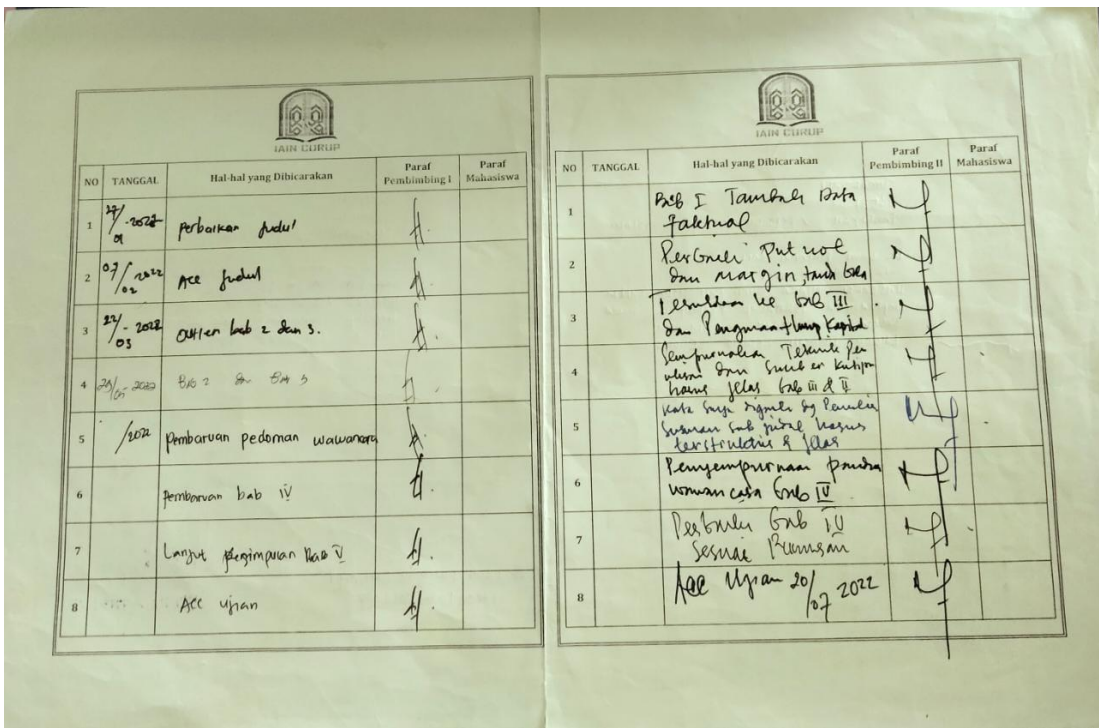 IAIN CURUP
NO TANGGAL Hal-hal yang Dibicarakan Paraf Pembimbing I Paraf Mahasiswa
1 27/01-2022 perbaikan judul
2 07/02 2022 Acc judul
3 22/03-2022 outlen bab 2 dan 3.
4 /05-2022 Bab 2 dan Bab 3
5 /2022 Pembaruan pedoman wawancara
6 Pembaruan bab IV
7 Lanjut Bab V
8 Acc ujian
IAIN CURUP
NO TANGGAL Hal-hal yang Dibicarakan Paraf Pembimbing II Paraf Mahasiswa
1 Bab I Tambah Data
Faktual
2 Perbaiki Put not
dan margin, tanda baca
3 ke bab III
dan Kapital
4 Sempurnakan Teknik Pen
ulisan dan Sumber Kutipan
harus jelas bab III & II
5 Kata Saya diganti dg Peneliti
Susunan sub judul harus
terstruktur & jelas
6 Penyempurnaan
bab IV
7 Perbaiki bab IV
Sesuai Rumusan
8 Acc Ujian 20/07 2022